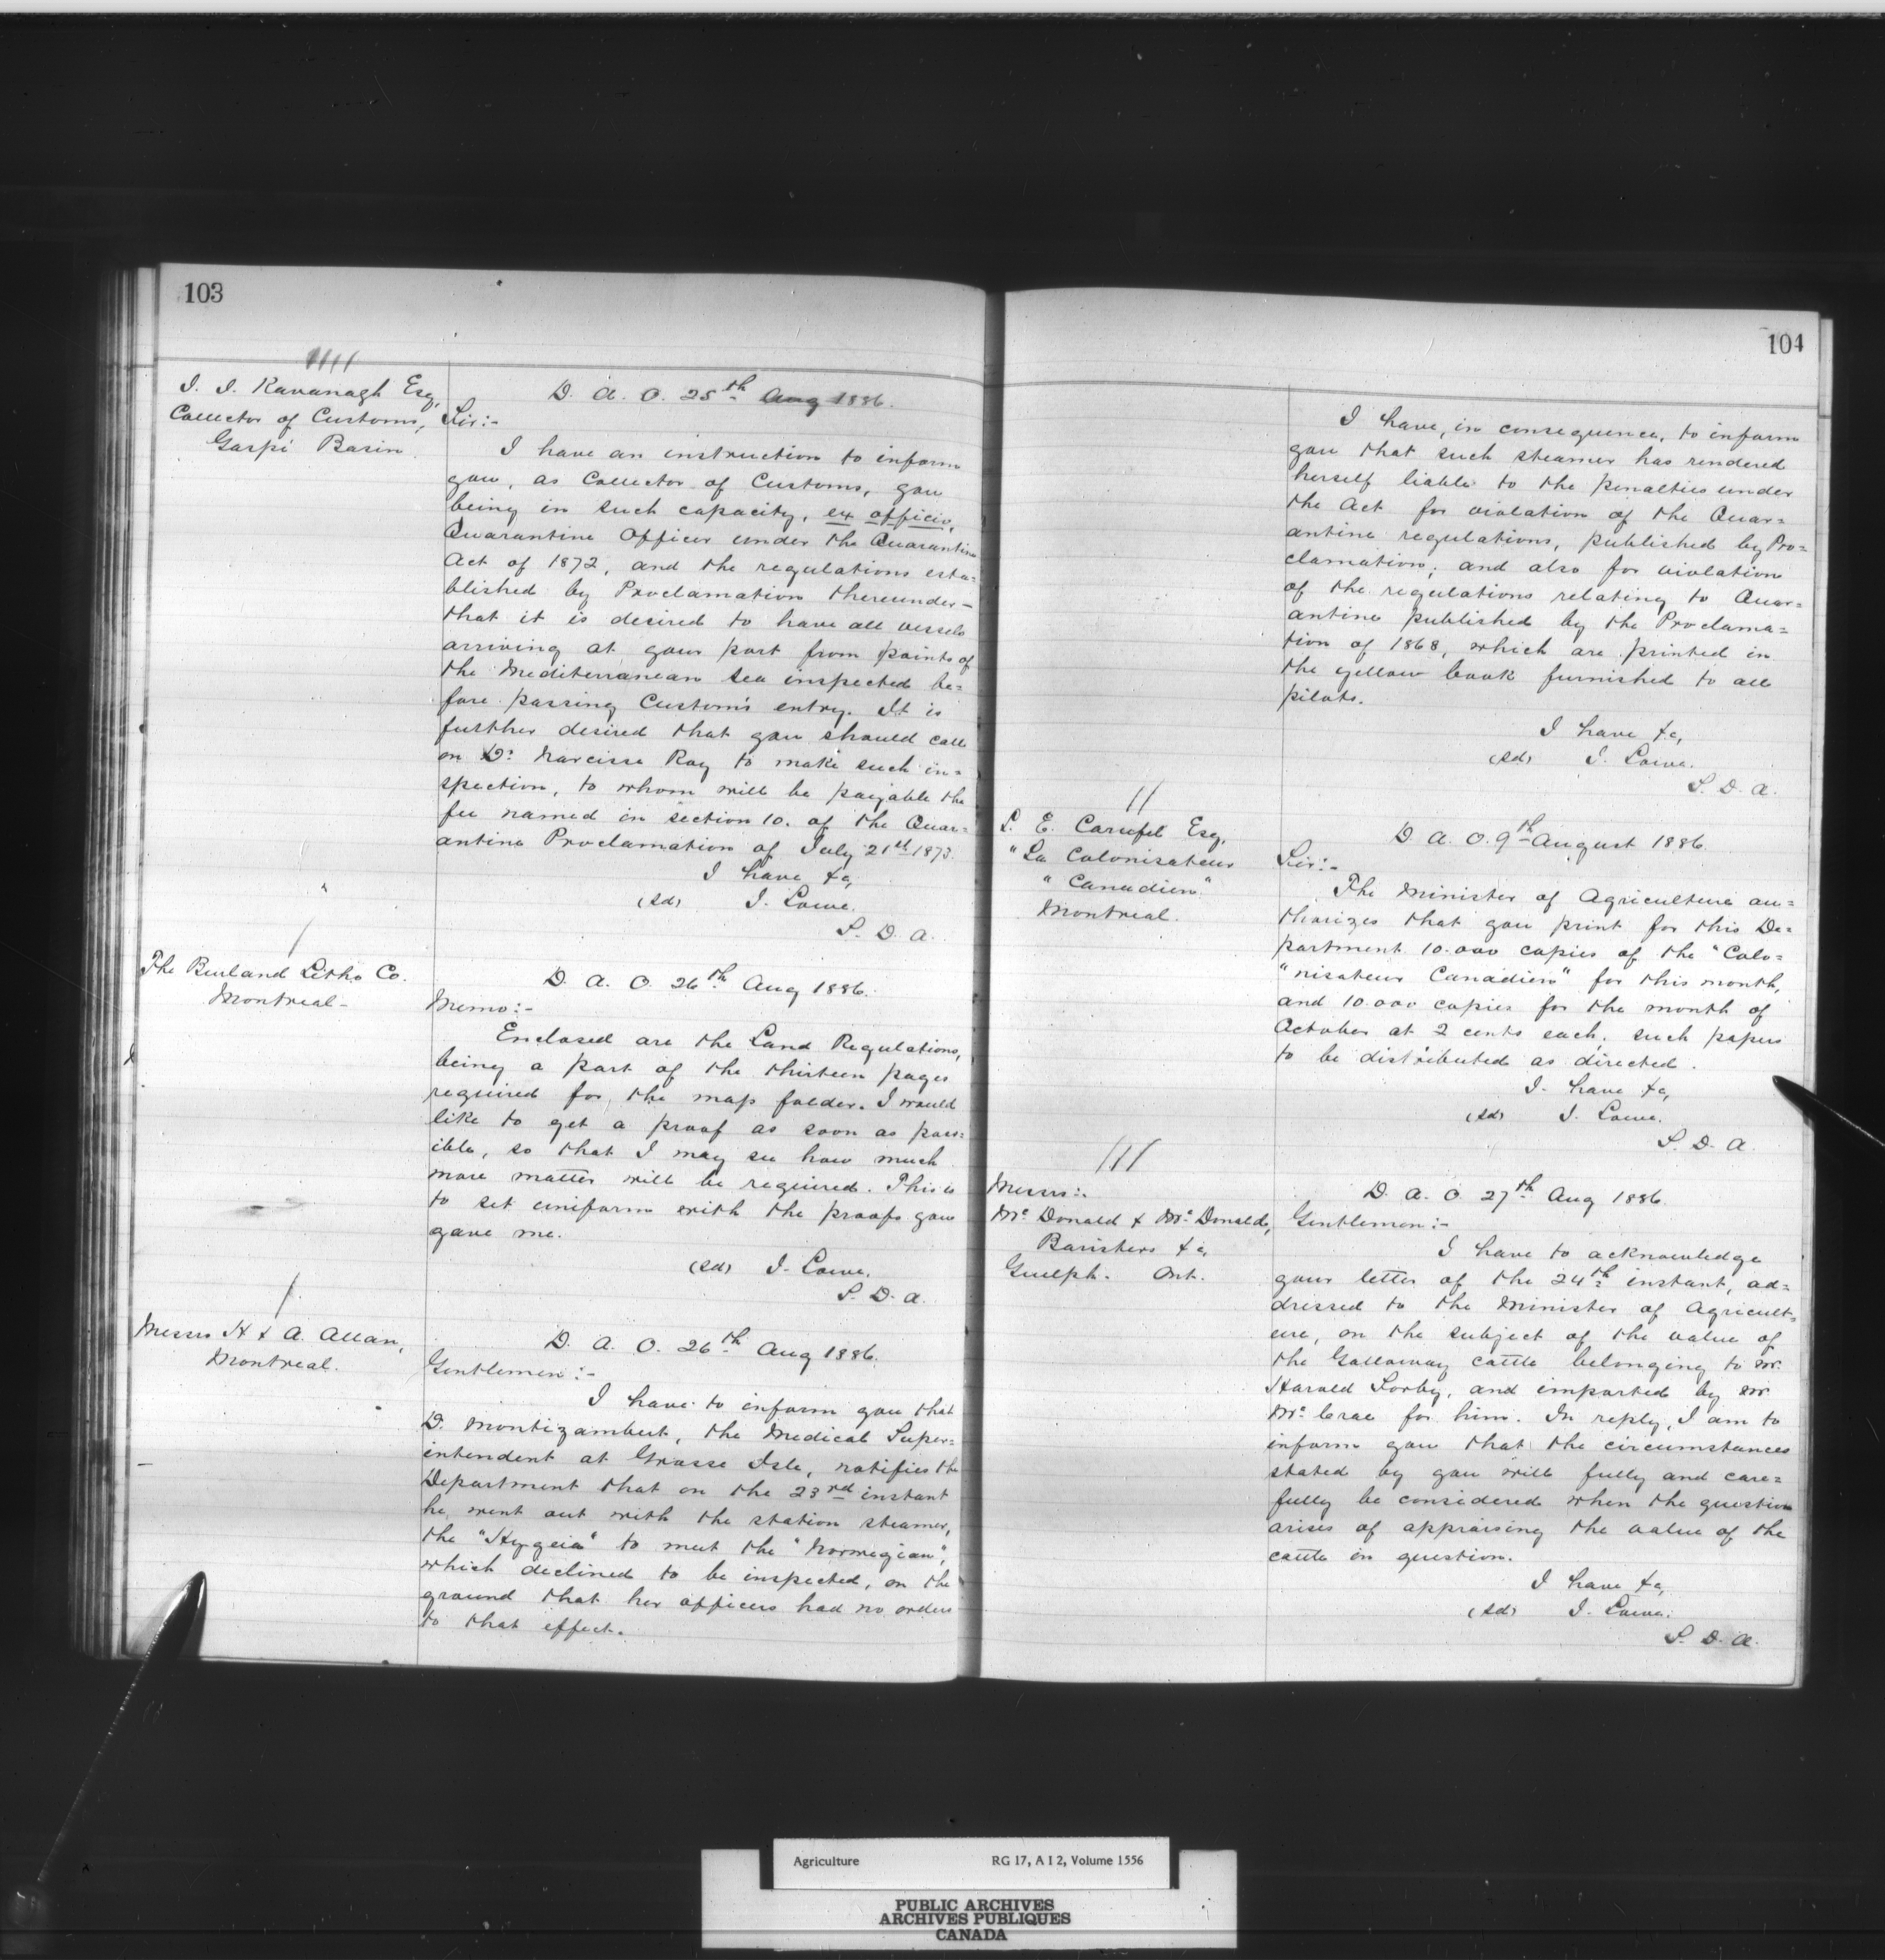 103
J. J. Kavanagh Esq,
Collector of Customs,
Gaspé Basin.
D. A. O. 25th Aug 1886.
Sir:-
I have an instruction to inform
you, as Collector of Customs, you
being in such capacity, ex officio,
Quarantine Officer under the Quarantine
Act of 1872, and the regulations esta=
blished by Proclamation thereunder-
that it is desired to have all vessels
arriving at your port from points of
the Mediterranean Sea inspected be=
fore passing Customs entry. It is
further desired that you should call
on Dr. Narcisse Roy to make such in=
spection, to whom will be payable the
fee named in section 10. of the Quar=
antine Proclamation of July 21st 1873.
I have &c,
(sd) J. Lowe.
S. D. A.
The Burland Litho Co.
Montreal-
D. A. O. 26th Aug 1886.
Memo:-
Enclosed are the Land Regulations,
being a part of the thirteen pages
required for the map folder. I would
like to get a proof as soon as poss=
ible, so that I may see how much
more matter will be required. This is
to set uniform with the proofs you
gave me.
(sd) J. Lowe.
S. D. A.
Messrs H & A. Allan,
Montreal.
D. A. O. 26th Aug 1886.
Gentlemen:-
I have to inform you that
Dr. Montizambert, the Medical Super=
intendent at Grosse Isle, notifies the
Department that on the 23rd instant
he went out with the station steamer,
the "Hygeia" to meet the "Norwegian",
which declined to be inspected, on the
ground that her officers had no orders
to that effect.
104
I have, in consequence, to inform
you that such steamer has rendered
herself liable to the penalties under
the Act for violation of the Quar=
antine regulations, published by Pro=
clamation; and also for violation
of the regulations relating to Quar=
antine published by the Proclama=
tion of 1868, which are printed in
the yellow book furnished to all
pilots.
I have &c,
(sd) J. Lowe.
S. D. A.
L. E. Carufel Esq,
"Le Colonisateur
"Canadien"
Montreal.
D. A. O. 9th August 1886.
Sir:-
The Minister of Agriculture au=
thorizes that you print for this De=
partment 10.000 copies of the "Colo=
"nisateur Canadien" for this month,
and 10.000 copies for the month of
October at 2 cents each, such papers
to be distributed as directed.
I have &c,
(sd) J. Lowe.
S. D. A.
Messrs:.
Mc Donald & Mc Donald,
Baristers &c,
Guelph. Ont.
D. A. O. 27th Aug 1886.
Gentlemen:-
I have to acknowledge
your letter of the 24th instant, ad=
dressed to the Minister of Agricult=
ure, on the subject of the value of
the Galloway cattle belonging to Mr.
Harold Sorby, and imported by Mr
Mc Crae for him. In reply, I am to
inform you that the circumstances
stated by you will fully and care=
fully be considered when the question
arises of appraising the value of the
cattle in question.
I have &c,
(sd) J. Lowe.
S. D. A.
Agriculture RG 17, A I 2, Volume 1556
PUBLIC ARCHIVES
ARCHIVES PUBLIQUES
CANADA